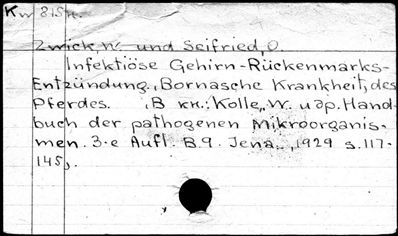 Kw 815н.
Zwick, W. und Seifried, O.
Infektiöse Gehirn-Rückenmarks-
Entzündung, Bornasche Krankheit, des
Pferdes. В кн.: Kolle, W. и др. Hand-
buch der pathogenen Mikroorganis-
men. 3-e Aufl. B.9. Jena, 1929 s. 117-
145.